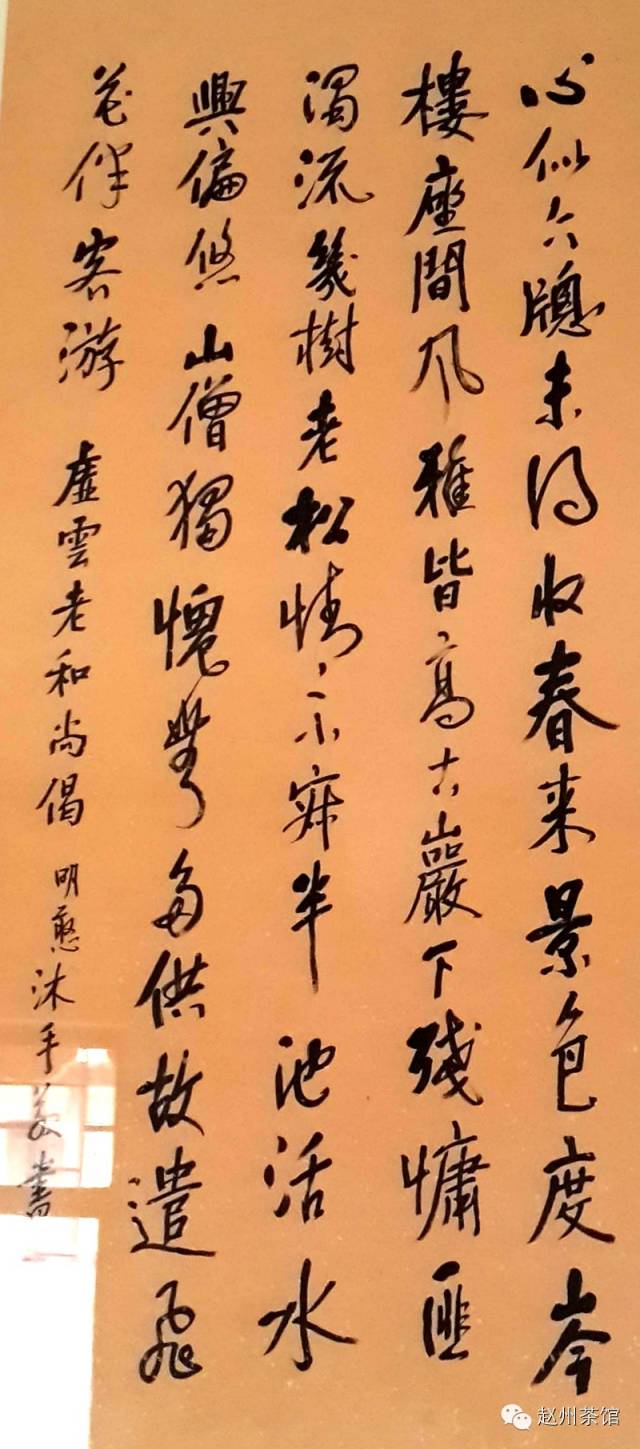 心似六牕未得收春来景色度岑
樓座間風雅皆高古巖下殘慵匪
濁流幾樹老松情不寂半池活水
興偏悠山僧獨愧無多供故遣飛
花伴客游 虛雲老和尚偈 明憨沐手敬書
赵州茶馆